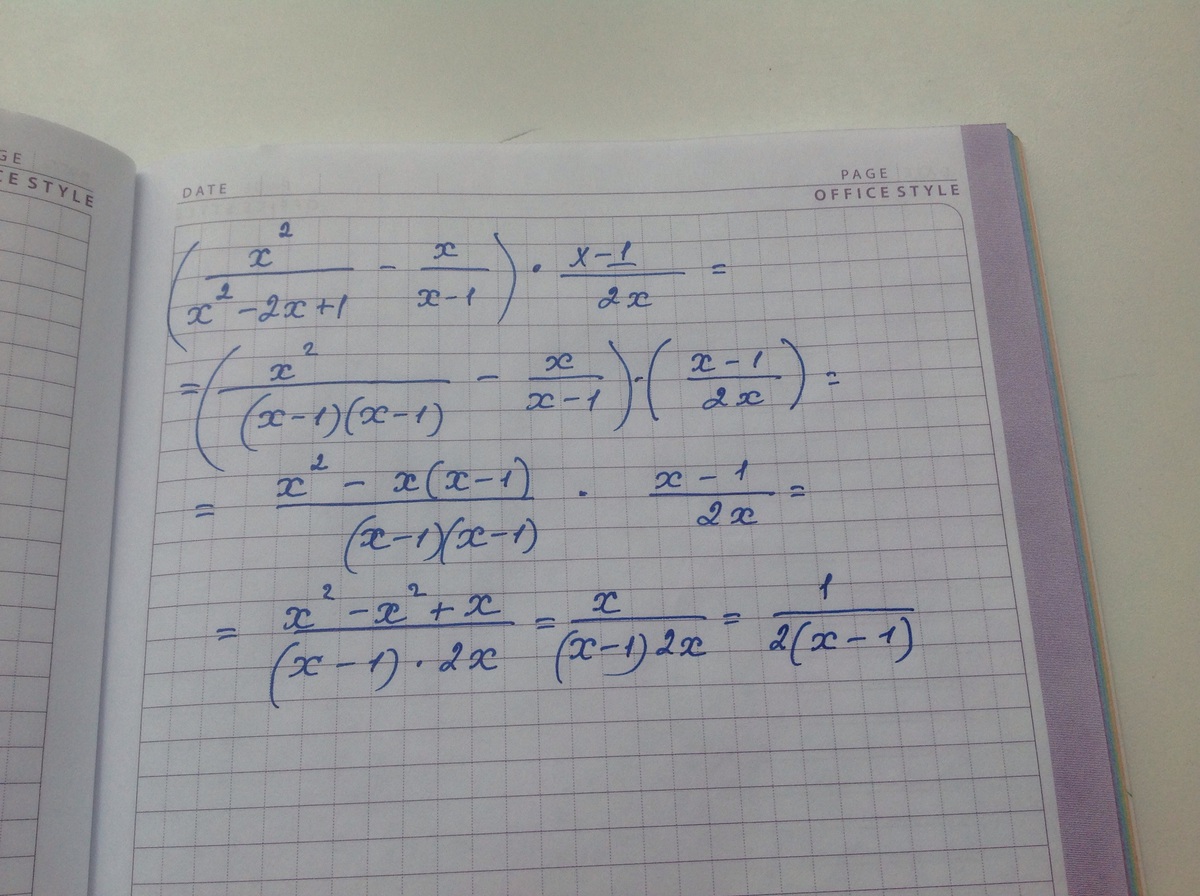 GE
CE STYLE
DATE
PAGE
OFFICE STYLE
(x²/(x²-2x+1) - x/(x-1)) · (x-1)/(2x) =
= (x²/((x-1)(x-1)) - x/(x-1)) · ((x-1)/(2x)) =
= (x² - x(x-1))/((x-1)(x-1)) · (x-1)/(2x) =
= (x² - x² + x)/((x-1) · 2x) = x/((x-1)2x) = 1/(2(x-1))